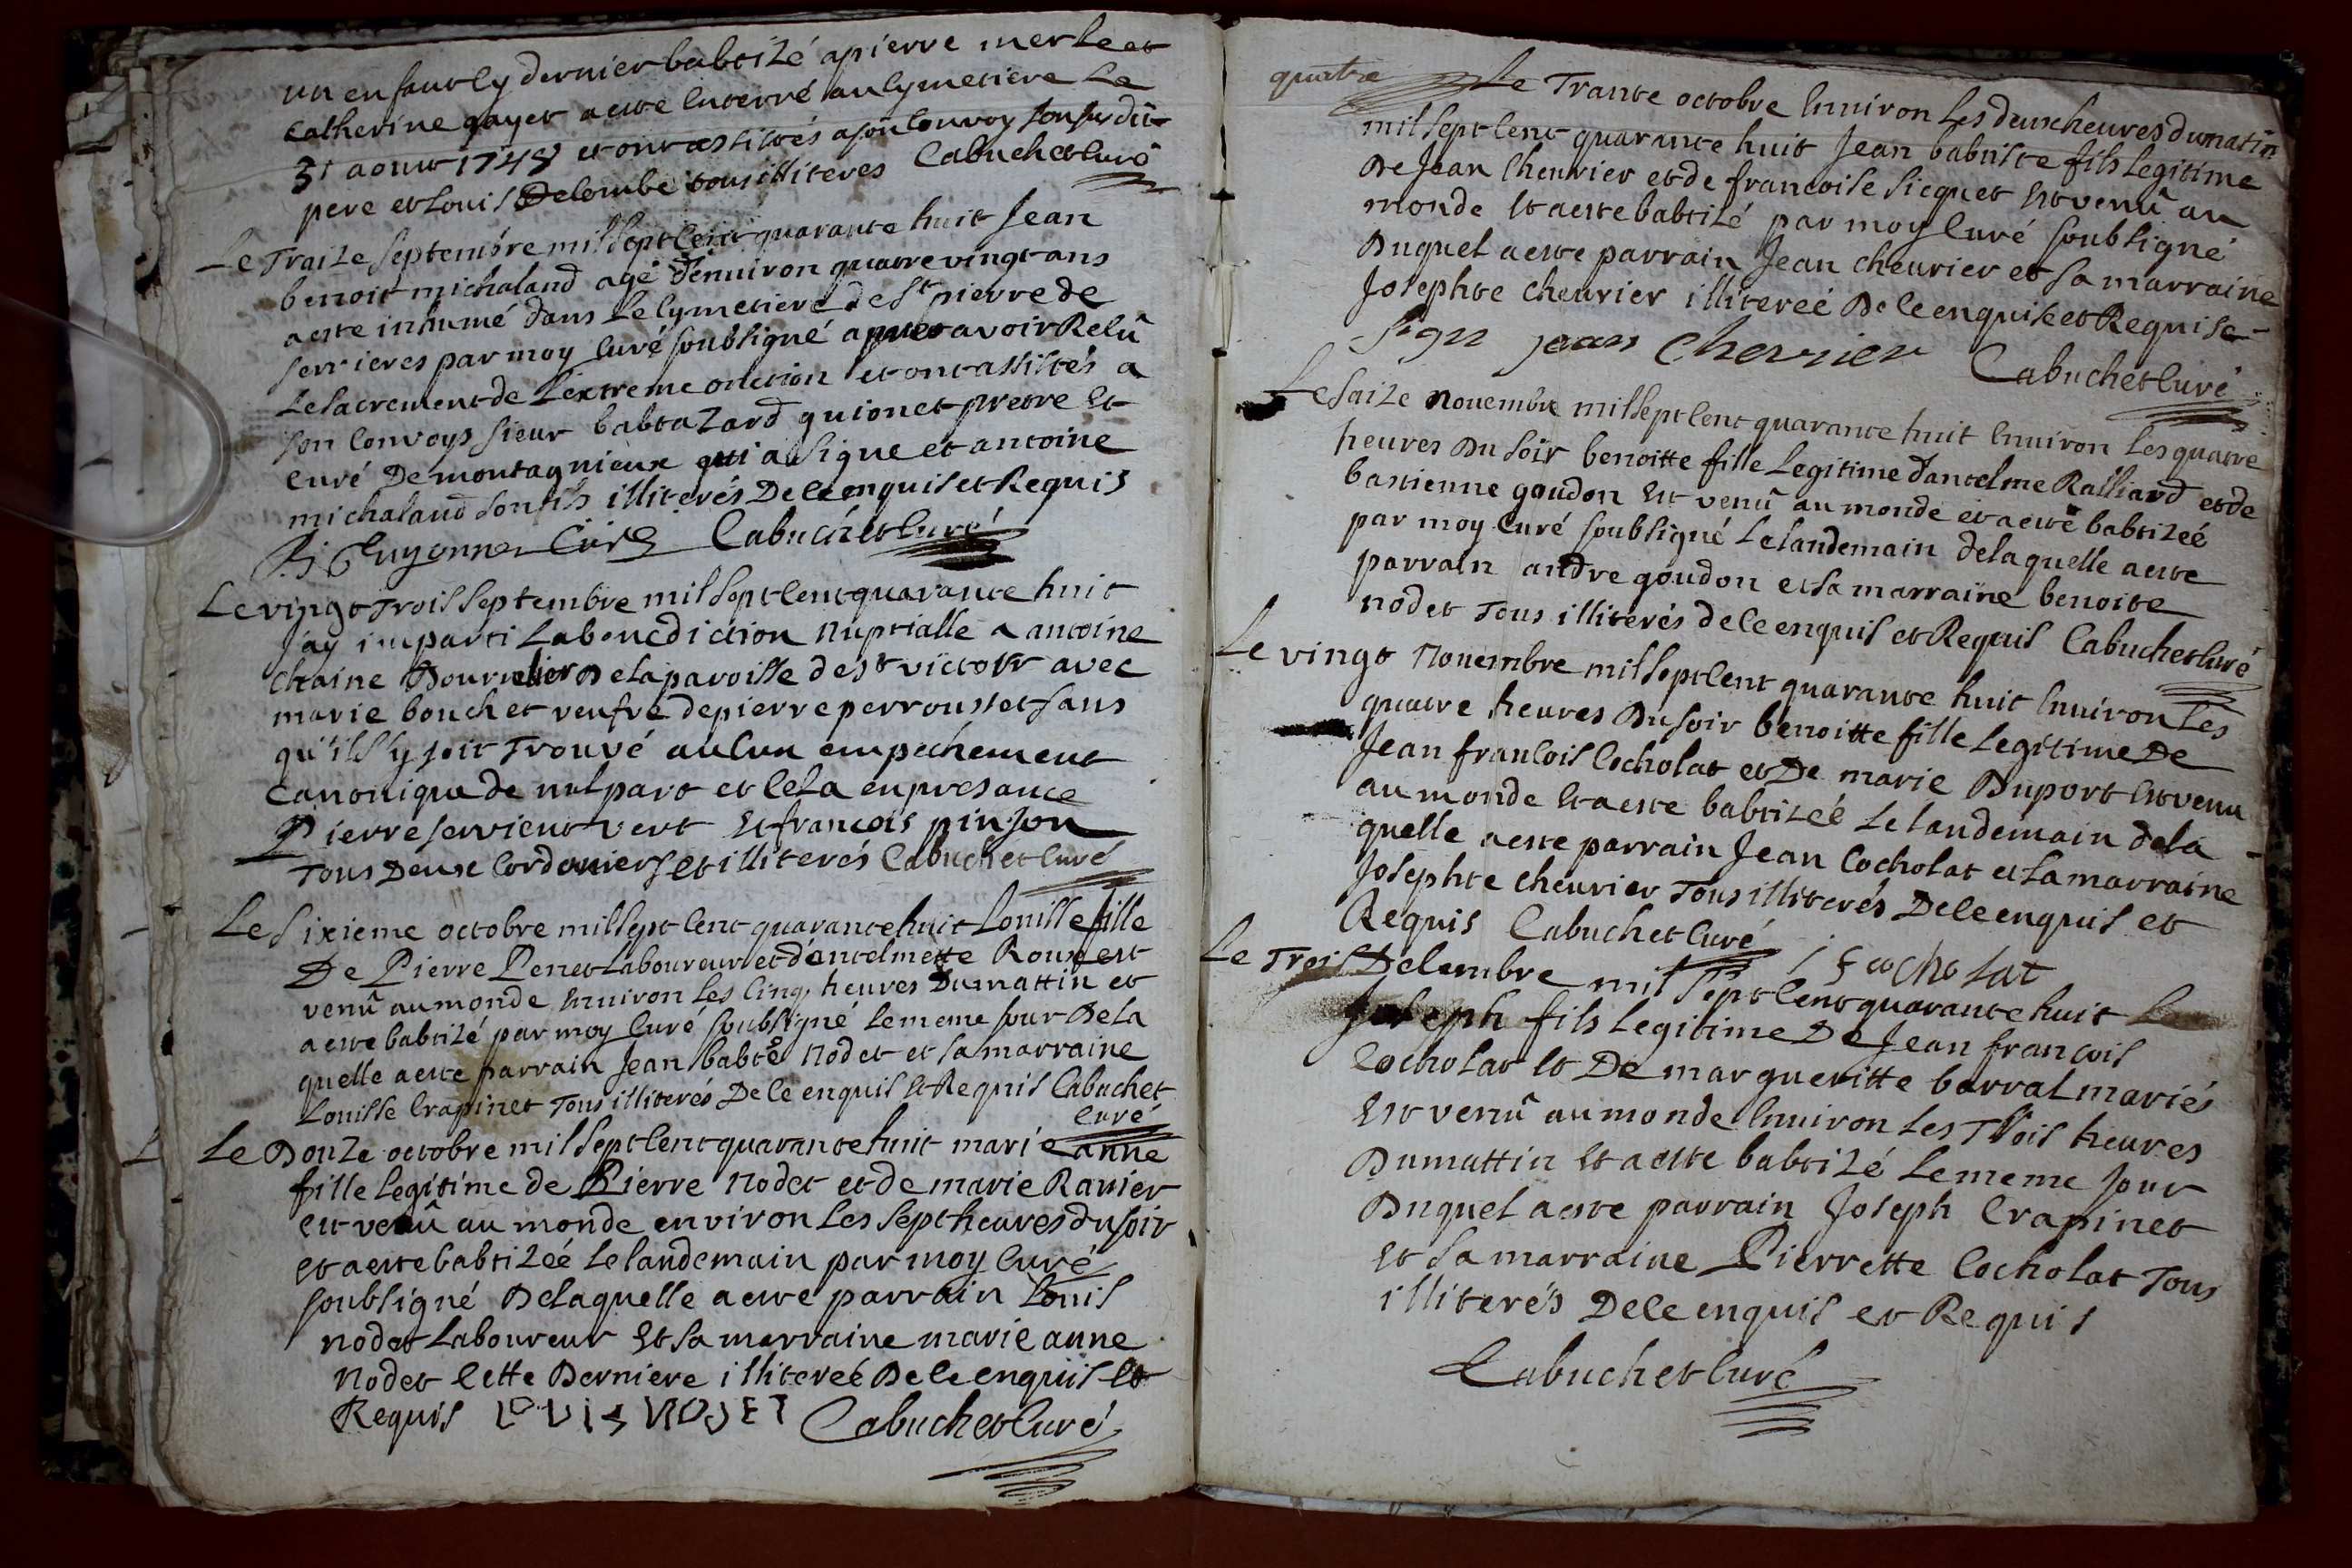 un enfant cy dernier babtizé a pierre merle et
Catherine gayet a este enterré au cymetiere le
31 aoust 1748 et ont assistés a son convoy son susdit
pere et Louis Delombe tous illiteres Cabuchet curé
Le Traize septembre mil sept cent quarante huit Jean
benoit michaland agé d'environ quatre vingt ans
a este inhumé dans le cymetiere de St pierre de
serrieres par moy curé soubsigné apres avoir Recû
Le sacrement de L'extreme onction et ont assistés a
son convoys sieur babtazard guionet pretre et
curé De montagnieux qui a signe et antoine
michaland son fils illiterés De ce enquis et Requis
B Guyonnet Curé Cabuchet curé
Le vingt Trois septembre mil sept cent quarante huit
J'ay imparti La benediction Nuptialle a antoine
chaine De la paroisse de st victor avec
marie bouchet veufve de pierre perrousset sans
qu'il s'y soit Trouvé aucun empechement
canonique de nulpart et cela en presance
Pierre servient vert et francois pinjon
Tous Deux cordoniers et illiterés Cabuchet curé
Le Sixieme octobre mil sept cent quarante huit Louisse fille
De Pierre Penet Laboureur et d'antelmette Roux est
venû au monde environ les cinq heures Du mattin et
a este babtizé par moy curé soubsigné le meme jour De la
quelle a este parrain Jean babte Nodet et sa marraine
Louisse Crapinet Tous illiterés De ce enquis et Requis Cabuchet
curé
Le Douze octobre mil sept cent quarante huit marie anne
fille Legitime de Pierre Nodet et de marie Ravier
est venû au monde environ les sept heures du soir
et a este babtizeé le landemain par moy curé
soubsigné De laquelle a este parrain Louis
nodet Laboureur et sa marraine marie anne
Nodet cette Derniere illitereé De ce enquis et
Requis LOUIS NODET Cabuchet curé
quatre
Le Trante octobre environ les deux heures du matin
mil sept cent quarante huit Jean babtiste fils Legitime
De Jean Cheurier et de francoise sicquet est venû au
monde et a este babtizé par moy curé soubsigné
Duquel a este parrain Jean cheurier et sa marraine
Josephte cheurier illitereé De ce enquise et Requise
Sign jean Chevrier Cabuchet curé
Le Saize Nouembre mil sept cent quarante huit environ les quatre
heures Du soir benoitte fille Legitime d'antelme Ralliard et de
bastienne goudon est venû au monde et a esté babtizeé
par moy curé soubsigné Le landemain de laquelle a este
parrain andre goudon et sa marraine benoite
nodet Tous illiterés de ce enquis et Requis Cabuchet curé
Le vingt Nouembre mil sept cent quarante huit environ les
quatre heures Du soir benoitte fille Legitime De
Jean francois Cocholat et De marie Duport est venu
au monde et a este babtizeé Le landemain de la
quelle a este parrain Jean Cocholat et sa marraine
Josephte cheurier Tous illiterés De ce enquis et
Requis Cabuchet curé j f cocholat
Le Trois Decembre mil sept cent quarante huit
Joseph fils legitime De Jean francois
Cocholat et De margueritte barral mariés
Est venû au monde environ les Trois heures
Du mattin et a este babtizé Le meme Jour
Duquel a este parrain Joseph Crapinet
et sa marraine Pierrette Cocholat Tous
illiterés De ce enquis et Requis
Cabuchet curé